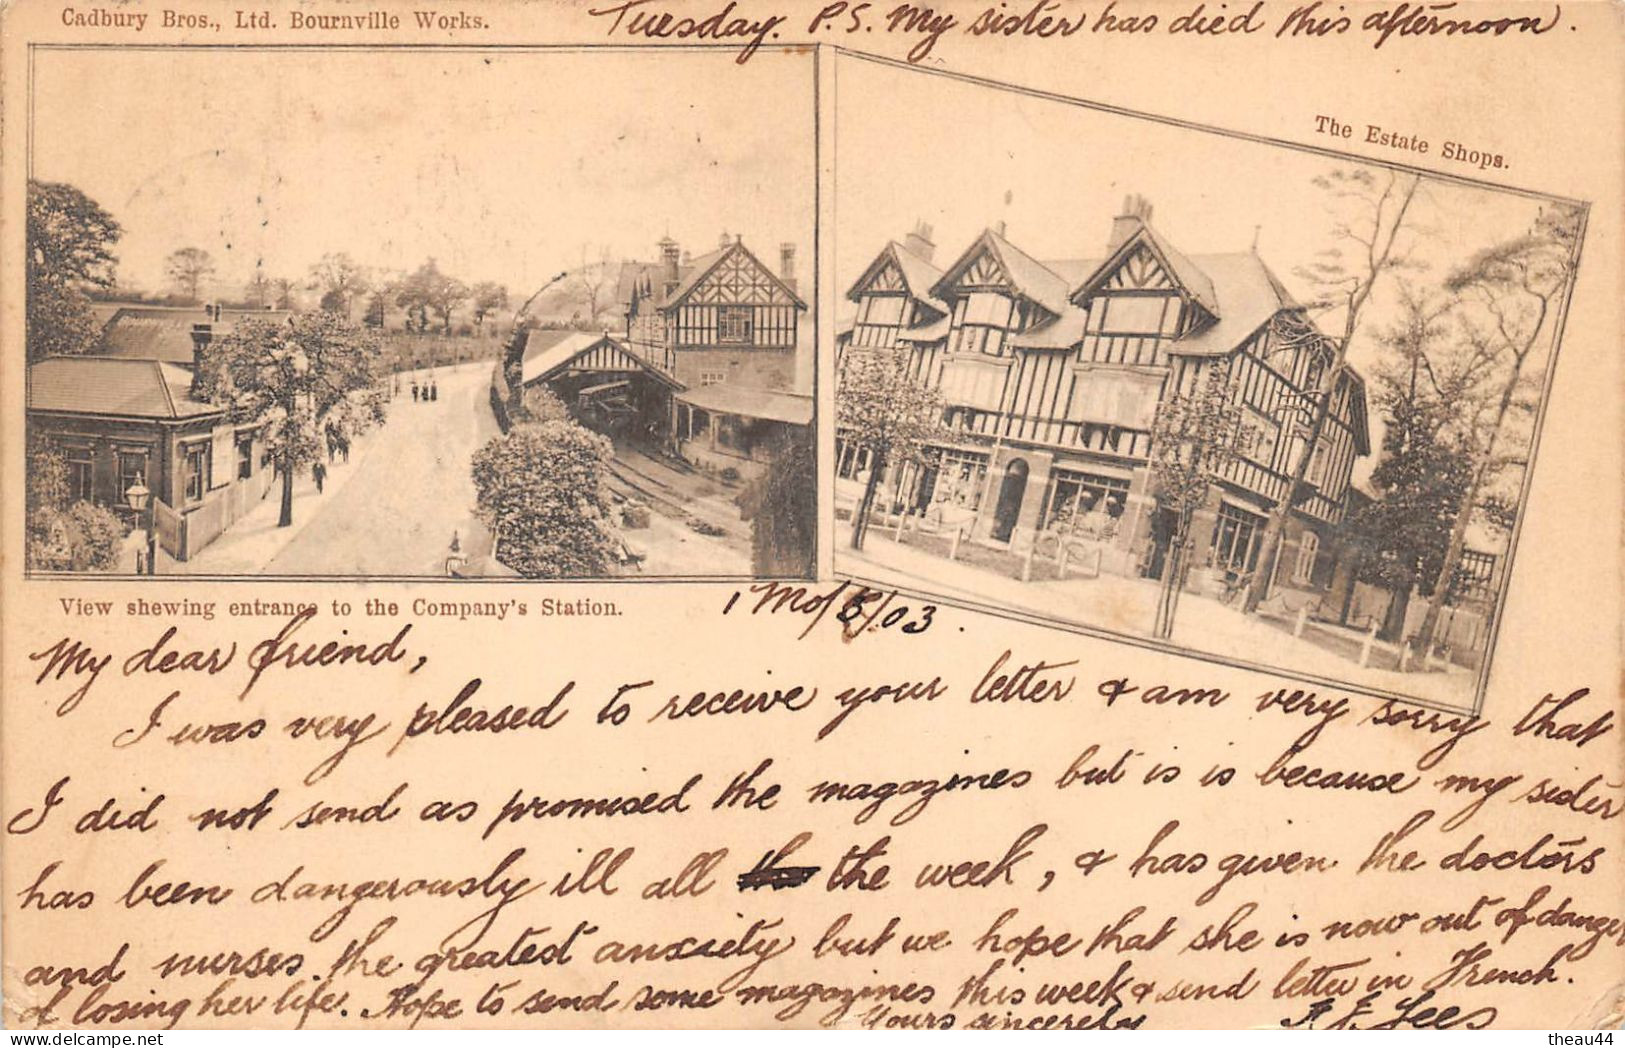 Cadbury Bros., Ltd. Bournville Works.
Tuesday. P.S. My sister has died this afternoon.
The Estate Shops.
View shewing entrance to the Company's Station.
1 Mo/5/03.
My dear friend,
I was very pleased to receive your letter & am very sorry that
I did not send as promised the magazines but is is because my sister
has been dangerously ill all the week, & has given the doctors
and nurses the greatest anxiety but we hope that she is now out of danger
of losing her life. Hope to send some magazines this week & send letter in French.
Yours sincerely
Lees
theau44